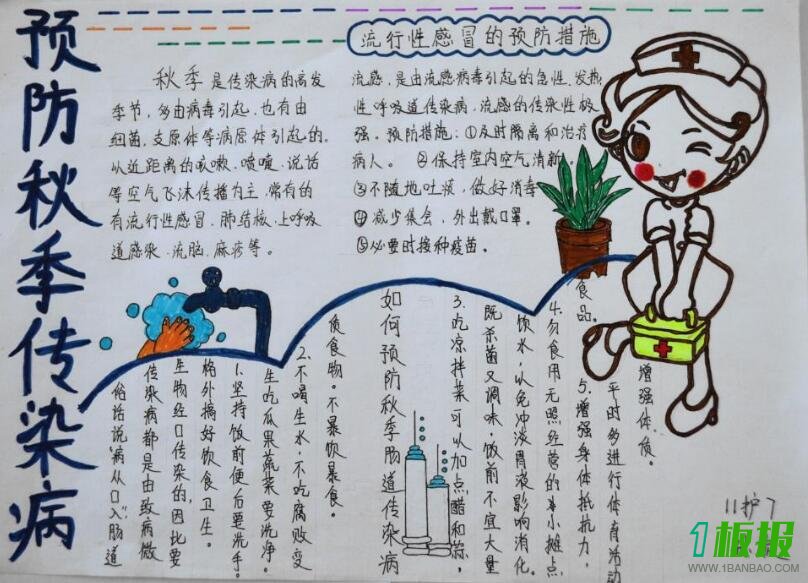 预防秋季传染病
秋季是传染病的高发
季节，多由病毒引起，也有由
细菌，支原体等病原体引起的。
以近距离的咳嗽、喷嚏、说话
等空气飞沫传播为主，常有的
有流行性感冒、肺结核、上呼吸
道感染、流脑、麻疹等。
流行性感冒的预防措施
流感，是由流感病毒引起的急性、发热
性呼吸道传染病，流感的传染性极
强。预防措施：①及时隔离和治疗
病人。②保持室内空气清新。
③不随地吐痰，做好消毒
④减少集会，外出戴口罩。
⑤必要时接种疫苗。
如何预防秋季肠道传染病
俗话说“病从口入”肠道
传染病都是由致病微
生物经口传染的，因比要
格外搞好饮食卫生。
1.坚持饭前便后要洗手。
生吃瓜果蔬菜要洗净。
2.不喝生水，不吃腐败变
质食物。不暴饮暴食。
3.吃凉拌菜可以加点醋和蒜，
既杀菌又调味，饭前不宜大量
饮水，以免冲淡胃液影响消化。
4.勿食用无照经营的小摊点
食品。
5.增强身体抵抗力，
平时多进行体育活动
增强体质。
11护7
1板报
WWW.1BANBAO.COM